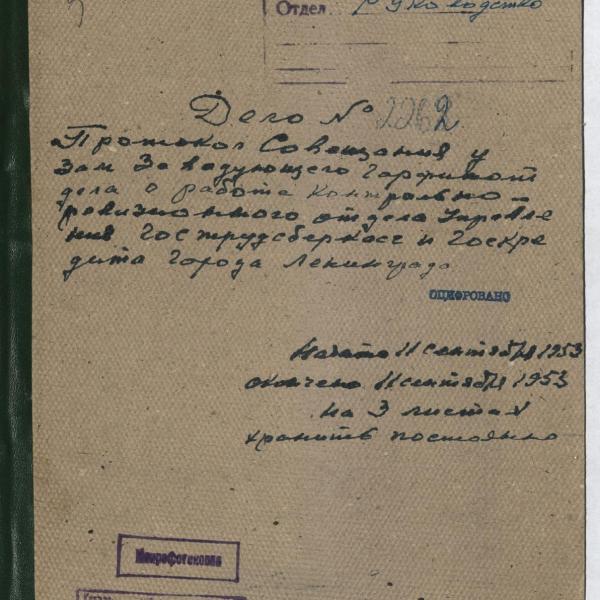 Отдел Руководство
Дело № 2262
Протокол Совещания у
зам Заведующего Горфинот
дела о работе контрольно-
ревизионного отдела Управле
ния Гострудсберкасс и Госкре
дита города Ленинграда
ОЦИФРОВАНО
Начато 11 сентября 1953
окончено 11 сентября 1953
на 3 листах
хранить постоянно
Микрофотокопия